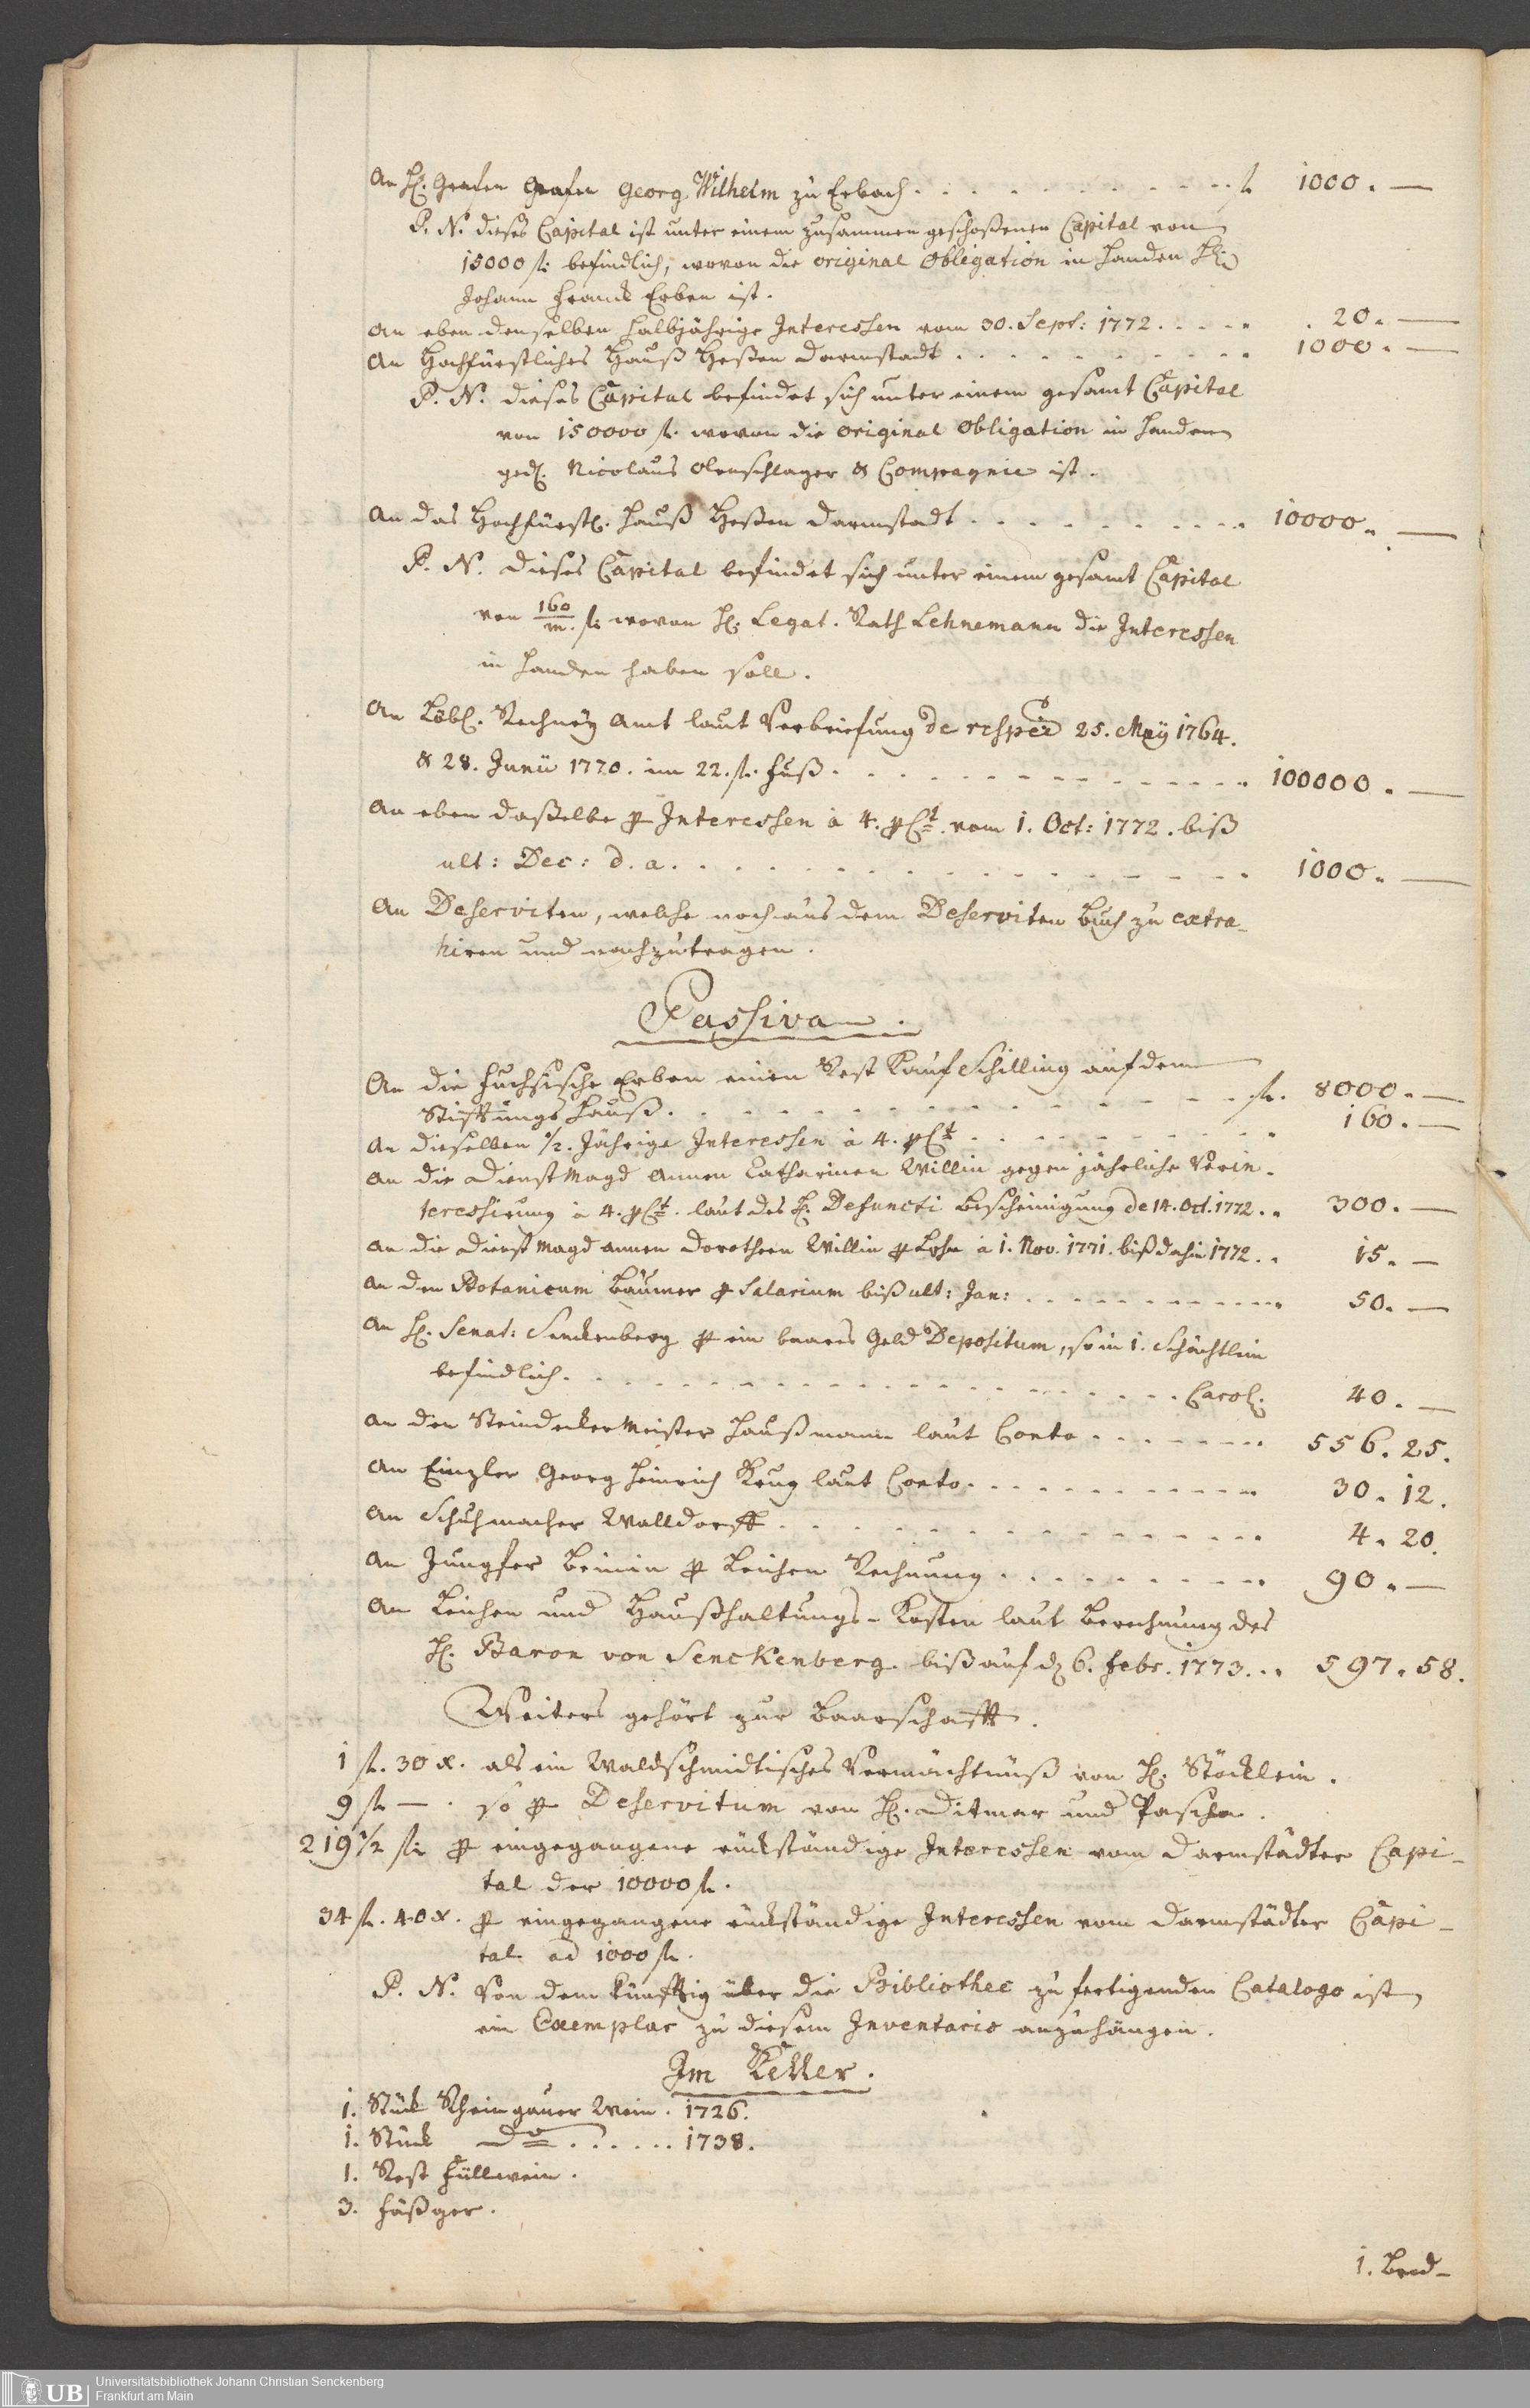 An H. Grafen Grafen Georg Wilhelm zu Erbach . . . . . . . . . . fl. 1000. —
P. N. dieses Capital ist unter einem zusammen geschoßenen Capital von
15000 fl. befindlich, wovon die original Obligation in Handen H.
Johann Franck Erben ist.
An eben denselben halbjährige Interessen vom 30. Sept: 1772. . . . . 20. —
An Hochfürstliches Hauß Heßen Darmstadt . . . . . . . . . . 1000. —
P. N. dieses Capital befindet sich unter einem gesamt Capital
von 150000 fl. wovon die original Obligation in Handen
Nicolaus Olenschlager & Compagnie ist.
An das Hochfürstl. Hauß Heßen Darmstadt . . . . . . . . . . 10000. —
P. N. dieses Capital befindet sich unter einem gesamt Capital
von 160/m. fl. wovon H. Legat. Rath Lehnemann die Interessen
in Handen haben soll.
An Löbl. Rechney Amt laut Verbriefung de resp. 25. May 1764.
& 28. Junii 1770. im 22. fl. Fuß . . . . . . . . . . 100000. —
An eben daßelbe pr Interessen à 4. pCt. vom 1. Oct: 1772. biß
ult: Dec: d. a. . . . . . . . . . . 1000. —
An Deserviten, welche noch aus dem Deserviten Buch zu extra-
hiren und nachzutragen.
Passiva.
An die Fuchsische Erben einen Rest Kauf Schilling auf dem
Stifftungs Hauß . . . . . . . . . . fl. 8000. —
An dieselben 1/2. Jährige Interessen à 4. pCt. . . . . . . . . . 160. —
An die Dienst Magd Annen Catharinen Willin gegen jährliche Verin-
teressirung à 4. pCt. laut des H. Defuncti Bescheinigung de 14. Oct. 1772. . 300. —
An die Dienst Magd Annen Dorotheen Willin pr Lohn à 1. Nov. 1771. biß dahin 1772. . 15. —
An den Botanicum Bäumer pr Salarium biß ult: Jan: . . . . . . . . . . 50. —
An H. Senat: Senckenberg pr ein baares Geld Depositum, so in 1. Schächtlein
befindlich . . . . . . . . . . Carol. 40. —
An den Steindecker Meister Haußmann laut Conto . . . . . . . 556. 25.
An Einzler Georg Heinrich Krug laut Conto . . . . . . . . . . 30. 12.
An Schuhmacher Walldorff . . . . . . . . . . 4. 20.
An Jungfer Beinin pr Leichen Rechnung . . . . . . . . . . 90. —
An Leichen und Haußhaltungs-Kosten laut Berechnung des
H. Baron von Senckenberg. biß auf d. 6. Febr. 1773. . . 597. 58.
Weiters gehört zur Baarschafft.
1 fl. 30 x. als ein Waldschmidtisches Vermächtnuß von H. Stöcklein.
9 fl. — . so pr Deservitum von H. Ditmar und Pascha.
219 1/2 fl. pr eingegangene rückständige Interessen vom Darmstädter Capi-
tal der 10000 fl.
34 fl. 40 x. pr eingegangene rückständige Interessen vom Darmstädter Capi-
tal ad 1000 fl.
P. N. Von dem künfftig über die Bibliothec zu fertigenden Catalogo ist
ein Exemplar zu diesem Inventario anzuhängen.
Im Keller.
1. Stück Rheingauer Wein. 1726.
1. Stück do . . . . . . 1738.
1. Rest Füllwein.
3. Fäßger.
1. Brod-
UB
Universitätsbibliothek Johann Christian Senckenberg
Frankfurt am Main